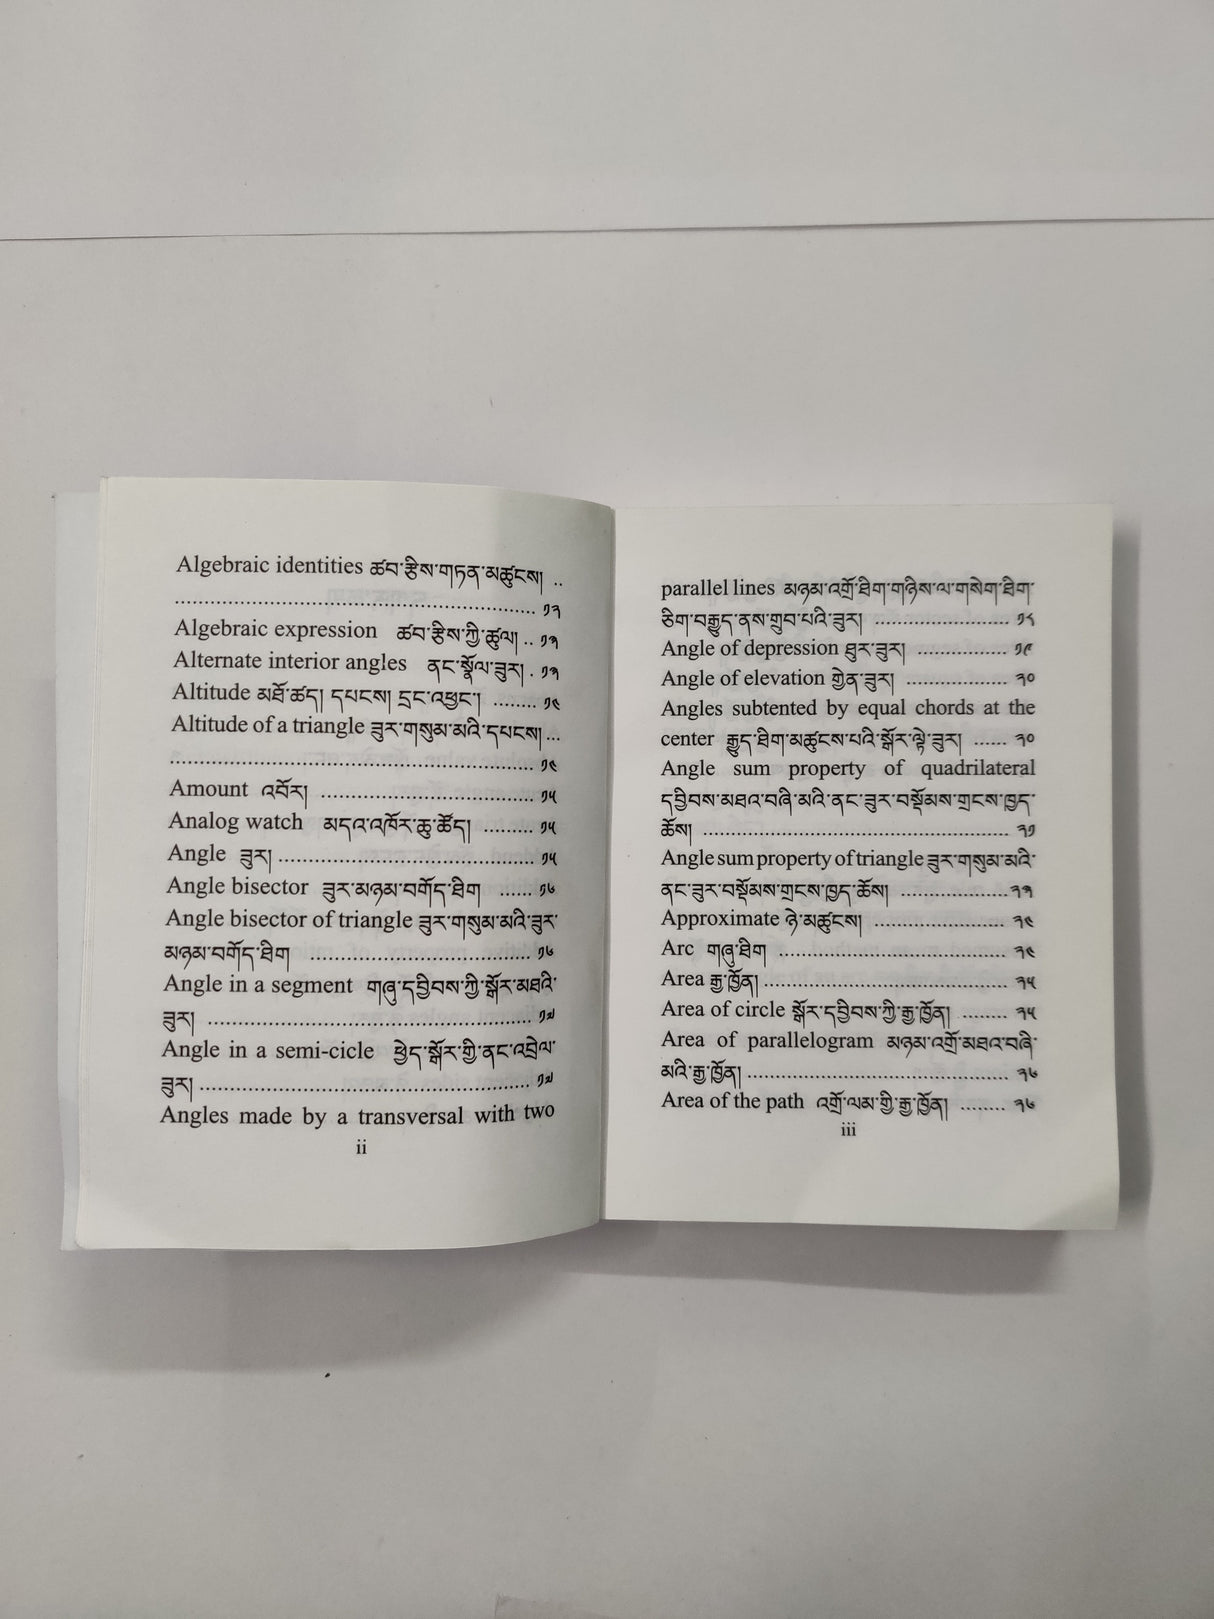 Algebraic identities ཚབ་རྩིས་གཏན་མཚུངས། ..
................................................................ ༡༢
Algebraic expression ཚབ་རྩིས་ཀྱི་ཚུལ། .. ༡༣
Alternate interior angles ནང་སྣོལ་ཟུར། . ༡༣
Altitude མཐོ་ཚད། དཔངས། དྲང་འཕྱང་། ........ ༡༤
Altitude of a triangle ཟུར་གསུམ་མའི་དཔངས། ...
................................................................ ༡༤
Amount འབོར། ..................................... ༡༥
Analog watch མདའ་འཁོར་ཆུ་ཚོད། ......... ༡༥
Angle ཟུར། ............................................ ༡༥
Angle bisector ཟུར་མཉམ་བགོད་ཐིག ...... ༡༦
Angle bisector of triangle ཟུར་གསུམ་མའི་ཟུར་
མཉམ་བགོད་ཐིག ....................................... ༡༦
Angle in a segment གཞུ་དབྱིབས་ཀྱི་སྒོར་མཐའི་
ཟུར། ........................................................ ༡༧
Angle in a semi-cicle ཕྱེད་སྒོར་གྱི་ནང་འབྲེལ་
ཟུར། ......................................................... ༡༧
Angles made by a transversal with two
ii
parallel lines མཉམ་འགྲོ་ཐིག་གཉིས་ལ་གསེག་ཐིག་
ཅིག་བརྒྱུད་ནས་གྲུབ་པའི་ཟུར། ....................... ༡༨
Angle of depression ཐུར་ཟུར། ............... ༡༩
Angle of elevation གྱེན་ཟུར། ................. ༢༠
Angles subtented by equal chords at the
center རྒྱུད་ཐིག་མཚུངས་པའི་སྒོར་ལྟེ་ཟུར། ...... ༢༠
Angle sum property of quadrilateral
དབྱིབས་མཐའ་བཞི་མའི་ནང་ཟུར་བསྡོམས་གྲངས་ཁྱད་
ཆོས། ..................................................... ༢༡
Angle sum property of triangle ཟུར་གསུམ་མའི་
ནང་ཟུར་བསྡོམས་གྲངས་ཁྱད་ཆོས། ..................༢༣
Approximate ཉེ་མཚུངས། ...................... ༢༤
Arc གཞུ་ཐིག ....................................... ༢༤
Area རྒྱ་ཁྱོན། .......................................... ༢༥
Area of circle སྒོར་དབྱིབས་ཀྱི་རྒྱ་ཁྱོན། ........ ༢༥
Area of parallelogram མཉམ་འགྲོ་མཐའ་བཞི་
མའི་རྒྱ་ཁྱོན། ............................................. ༢༦
Area of the path འགྲོ་ལམ་གྱི་རྒྱ་ཁྱོན། ........ ༢༦
iii